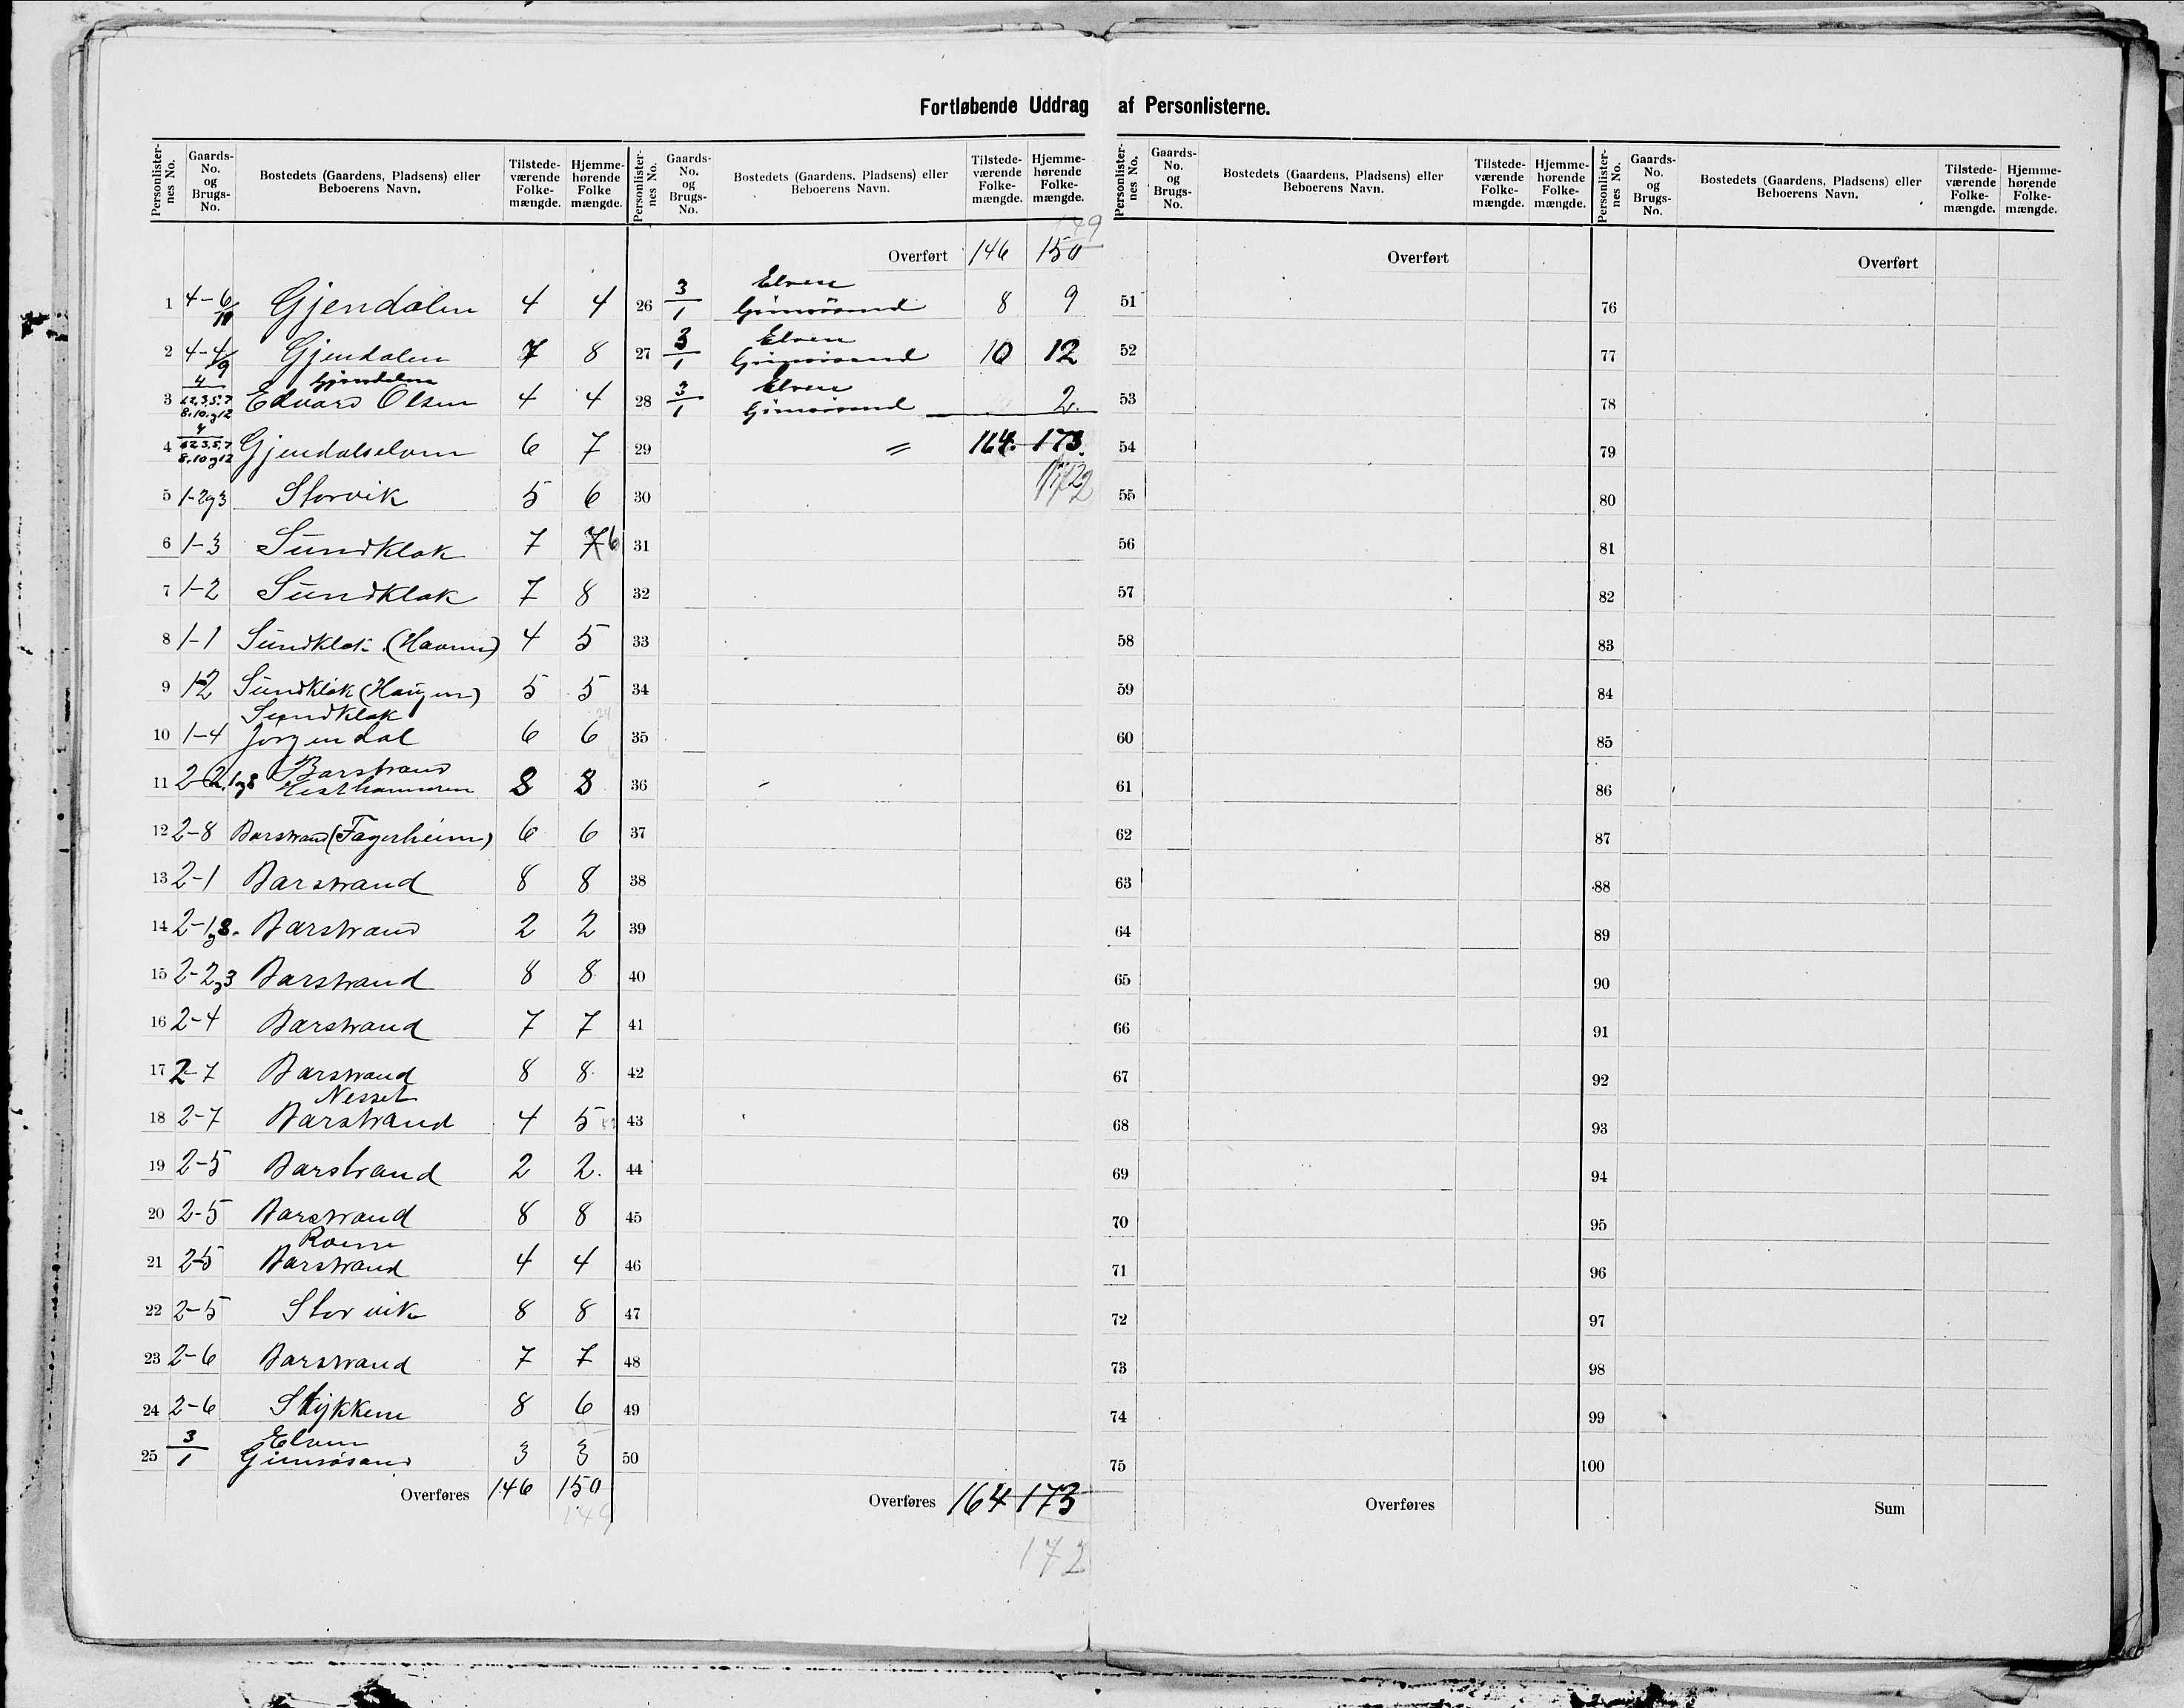 Fortløbende Uddrag af Personlisterne.
Personlisternes No. Gaards-No. og Brugs-No. Bostedets (Gaardens, Pladsens) eller Beboerens Navn. Tilstedeværende Folkemængde. Hjemmehørende Folkemængde.
1 4-6/11 Gjendalen 4 4
2 4-4/9 Gjendalen 7 8
Gjendalen
3 4 1.2.3.5.7 8.10.g12 Edvard Olsen 4 4
4 4 1.2.3.5.7 8.10g12 Gjendalselven 6 7
5 1-2g3 Storvik 5 6
6 1-3 Sundklak 7 7 6
7 1-2 Sundklak 7 8
8 1-1 Sundklak (Havnen) 4 5
9 1-2 Sundklak (Haugen) 5 5
Sundklak
10 1-4 Jörgendal 6 6
Barstrand
11 2-2.1g8 Hesthammeren 8 8
12 2-8 Barstrand (Fagerheim) 6 6
13 2-1 Barstrand 8 8
14 2-1g8. Barstrand 2 2
15 2-2g3 Barstrand 8 8
16 2-4 Barstrand 7 7
17 2-7 Barstrand 8 8
Nesset
18 2-7 Barstrand 4 5
19 2-5 Barstrand 2 2.
20 2-5 Barstrand 8 8
21 2-5 Barstrand 4 4
22 2-5 Storvik 8 8
23 2-6 Barstrand 7 7
24 2-6 Stykkene 8 6
Elven
25 3/1 Gimsösand 3 3
Overføres 146 150
149
Personlisternes No. Gaards-No. og Brugs-No. Bostedets (Gaardens, Pladsens) eller Beboerens Navn. Tilstedeværende Folkemængde. Hjemmehørende Folkemængde.
149
Overført 146 150
Elven
26 3/1 Gimsösand 8 9
Elven
27 3/1 Gimsösand 10 12
Elven
28 3/1 Gimsösand 2.
29 = 164. 173.
172
30
31
32
33
34
35
36
37
38
39
40
41
42
43
44
45
46
47
48
49
50
Overføres 164 173
172
Personlisternes No. Gaards-No. og Brugs-No. Bostedets (Gaardens, Pladsens) eller Beboerens Navn. Tilstedeværende Folkemængde. Hjemmehørende Folkemængde.
Overført
51
52
53
54
55
56
57
58
59
60
61
62
63
64
65
66
67
68
69
70
71
72
73
74
75
Overføres
Personlisternes No. Gaards-No. og Brugs-No. Bostedets (Gaardens, Pladsens) eller Beboerens Navn. Tilstedeværende Folkemængde. Hjemmehørende Folkemængde.
Overført
76
77
78
79
80
81
82
83
84
85
86
87
88
89
90
91
92
93
94
95
96
97
98
99
100
Sum